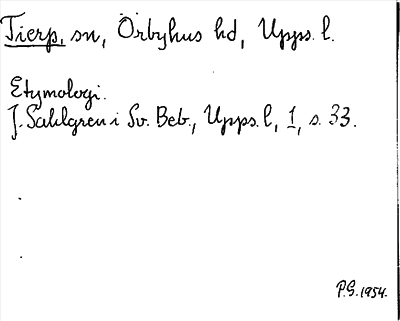 Tierp, sn, Örbyhus hd, Upps. l.
Etymologi.
J. Sahlgren i Sv. Beb., Upps. l, 1, s. 33.
P.G. 1954.